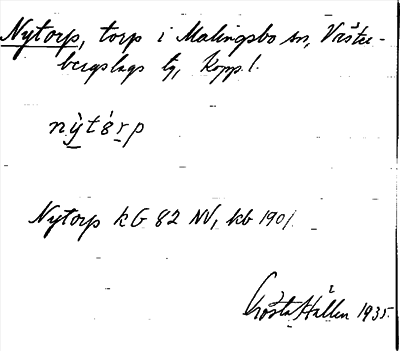 Nytorp, torp i Malingsbo sn, Väster-
bergslags tg, Kopp. l.
nỳtórp
Nytorp kG 82 NV, kb 1901.
Gösta Hallen 1935.